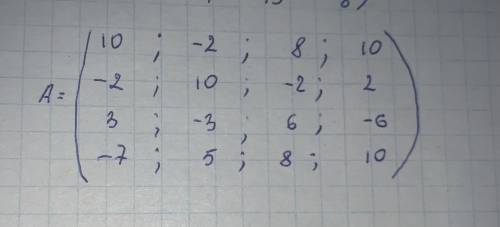 10 ; -2 ; 8 ; 10
-2 ; 10 ; -2 ; 2
A =
3 ; -3 ; 6 ; -6
-7 ; 5 ; 8 ; 10